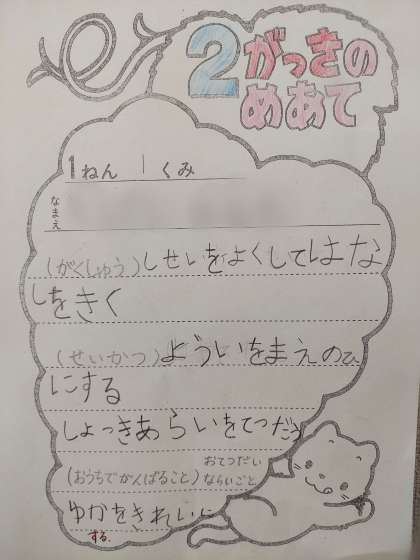 2がっきの
めあて
1ねん 1くみ
なまえ
(がくしゅう)しせいをよくしてはな
しをきく
(せいかつ)よういをまえのひ
にする
しょっきあらいをてつだう
(おうちでがんばること)おてつだい
ならいごと
ゆかをきれいに
する。